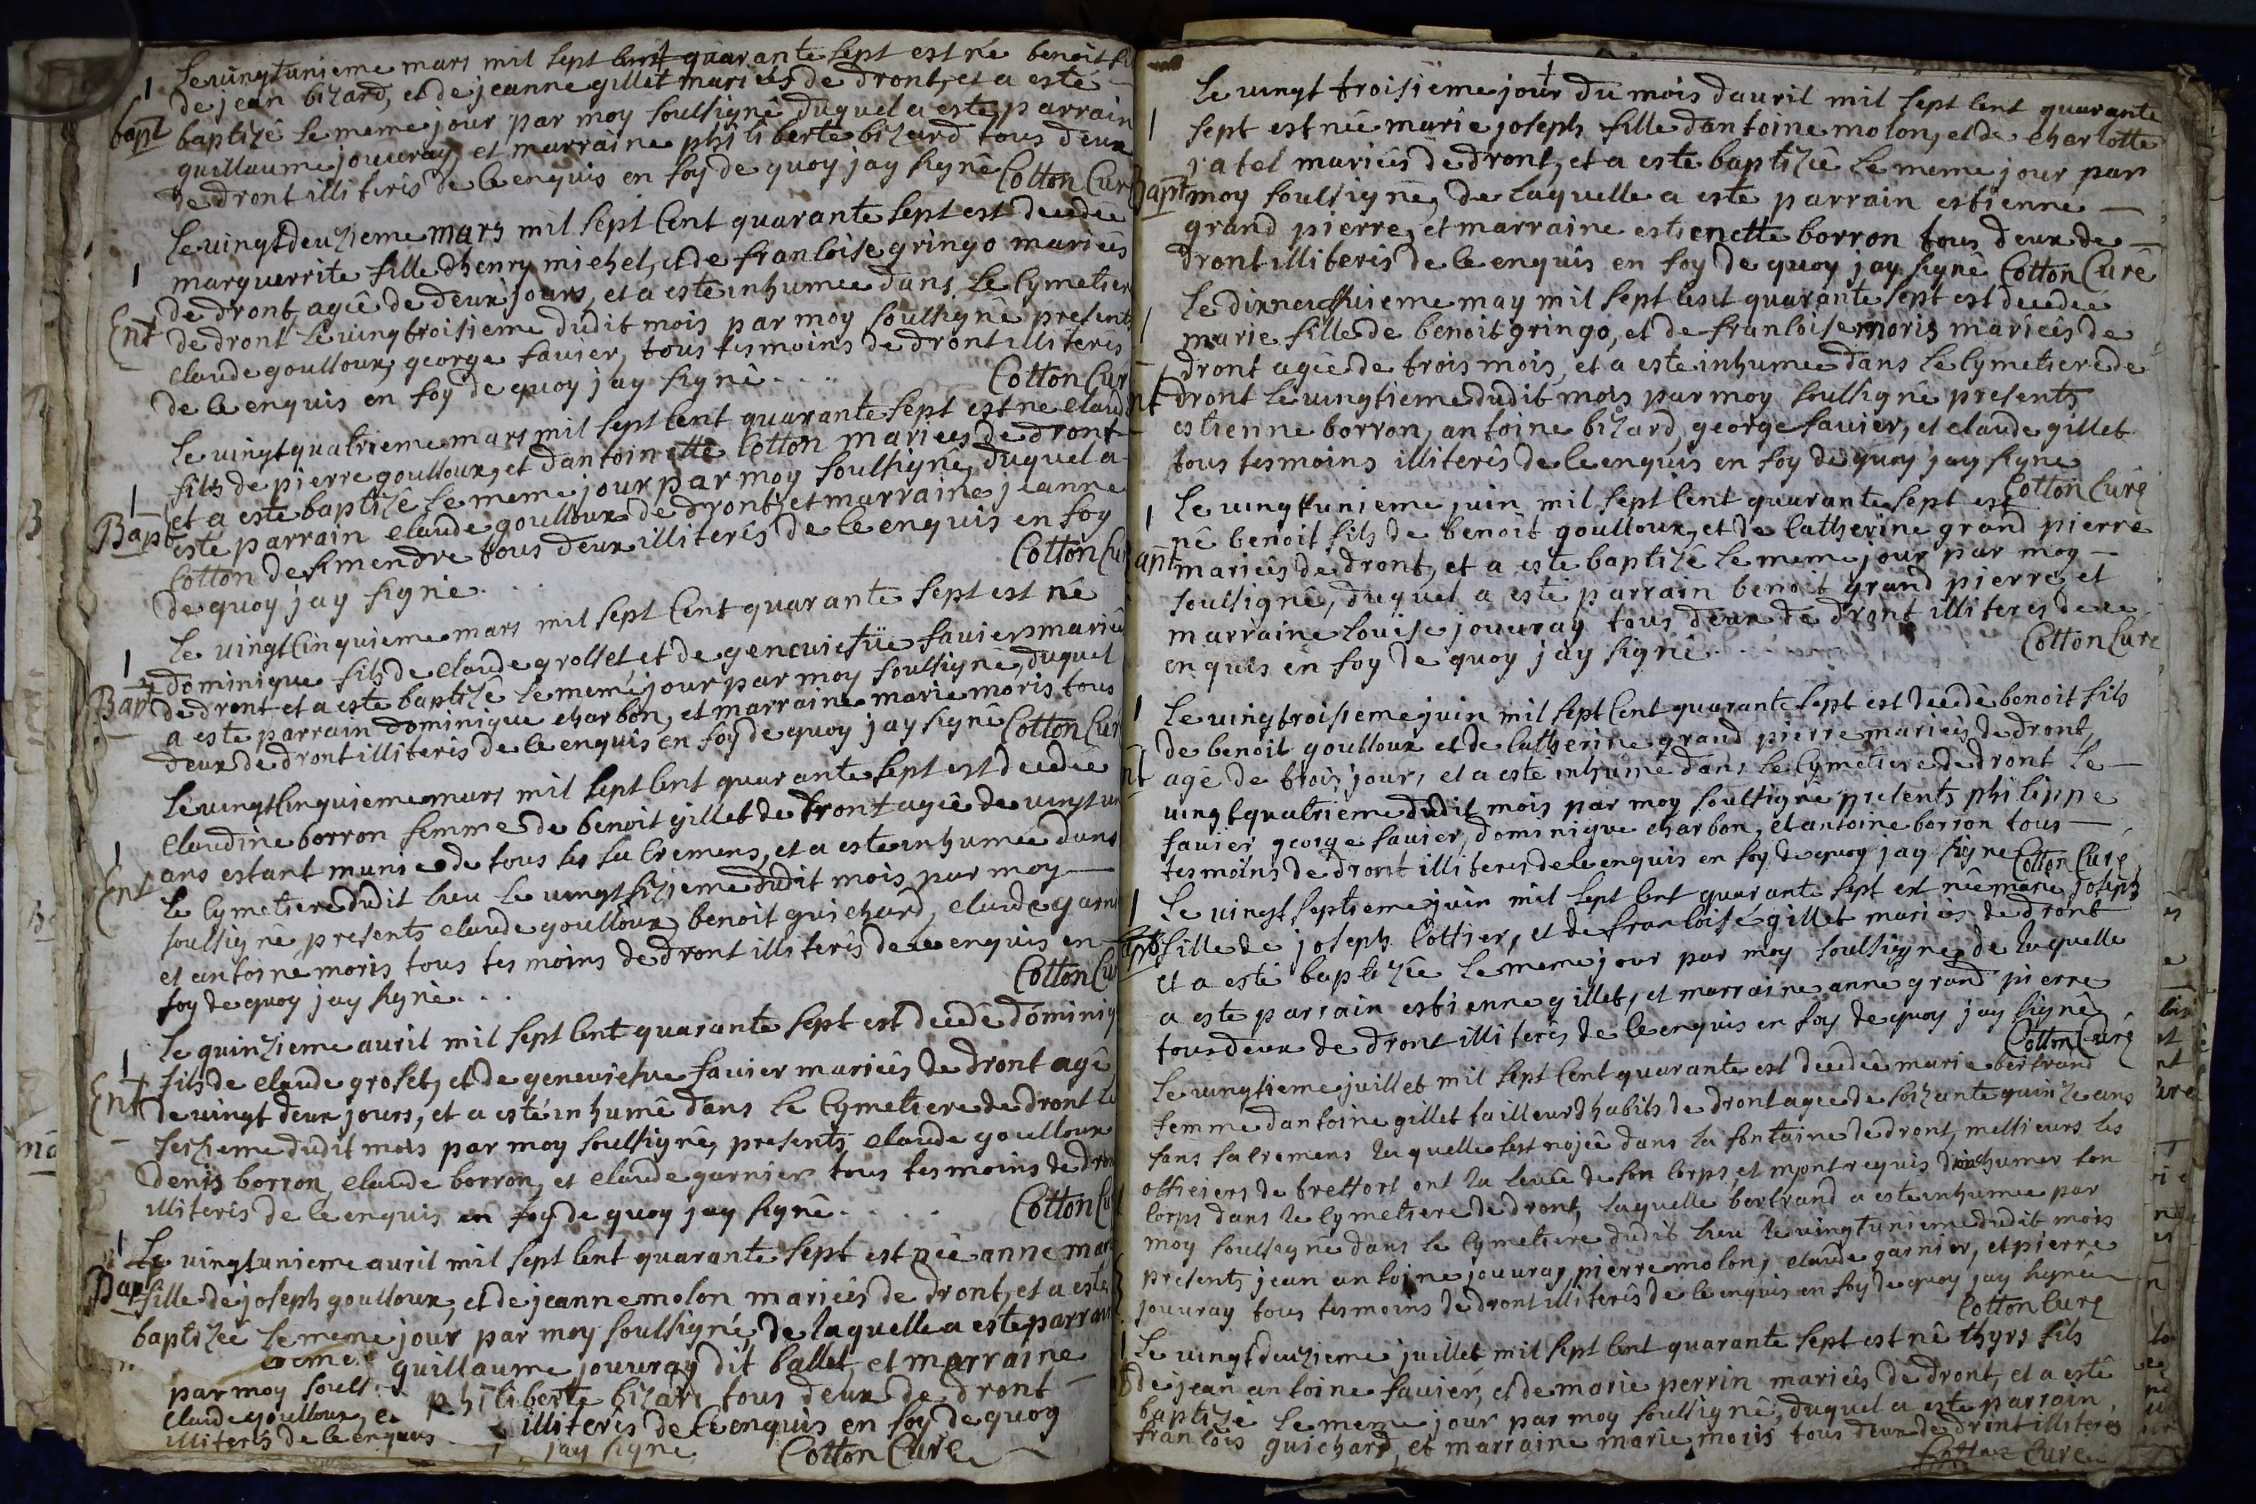 Le vingtunieme mars mil sept cent quarante sept est né benoit fi
de jean bizard, et de jeanne gillet mariés de dront, et a esté
bapt baptizé le meme jour par moy soussigné duquel a esté parrain
guillaume jouvray, et marraine philiberte bizard tous deux
de dront illiterés de ce enquis en foy de quoy jay signé Cotton Cur
Le vingtdeuzieme mars mil sept cent quarante sept est decedée
marguerrite fille dhenry michel, et de francoise gringo mariés
de dront, agée de deux jours, et a esté inhumée dans le cymetier
Ent de dront le vingtroisieme dudit mois par moy soussigné presents
claude goulloux, george favier, tous tesmoins de dront illiterés
de ce enquis en foy de quoy jay signé . . . . Cotton Cur
Le vingtquatrieme mars mil sept cent quarante sept est né claud
fils de pierre goulloux, et dantoinette Cotton mariées de dront
et a esté baptizé le meme jour par moy soussigné, duquel a
Bapt esté parrain claude goulloux de dront, et marraine jeanne
Cotton de simendre tous deux illiterés de ce enquis en foy
de quoy jay signé . . Cotton Cur
Le vingtcinquieme mars mil sept cent quarante sept est né
dominique fils de claude grosset, et de geneviefve favier mariés
Bap de dront et a esté baptizé le meme jour par moy soussigné, duquel
a esté parrain dominique charbon, et marraine marie moris tous
deux de dront illiterés de ce enquis en foy de quoy jay signé Cotton Cur
Le vingtcinquieme mars mil sept cent quarante sept est decedée
claudine borron femme de benoit gillet de dront agée de vingt un
ans estant munie de tous les sacremens, et a esté inhumée dans
Ent le cymetiere dudit lieu le vingtsizieme dudit mois par moy
soussigné presents claude goulloux, benoit guichard, claude garni
et antoine moris tous tesmoins de dront illiterés de ce enquis en
foy de quoy jay signé . . . Cotton Cur
Le quinzieme avril mil sept cent quarante sept est decedé dominiq
fils de claude groset, et de geneviefve favier mariés de dront agé
Ent de vingt deux jours, et a esté inhumé dans le cymetiere de dront le
seizieme dudit mois par moy soussigné, presents claude goulloux
denis borron, claude borron, et claude garnier tous tesmoins de dron
illiterés de ce enquis en foy de quoy jay signé . . . . Cotton Cu
Le vingtunieme avril mil sept cent quarante sept est née anne mar
Bap fille de joseph goulloux, et de jeanne molon mariés de dront, et a esté
baptizée le meme jour par moy soussigné, de laquelle a esté parrain
guillaume jouvray dit ballet, et marraine
par moy souss
philiberte bizard tous deux de dront
claude goulloux, e
illiterés de ce enquis en foy de quoy
illiterés de ce enquis
jay signé Cotton Curé
Le vingt troisieme jour du mois davril mil sept cent quarante
sept est née marie joseph fille dantoine molon, et de charlotte
ratel mariés de dront, et a esté baptizée le meme jour par
Bapt moy soussigné, de laquelle a esté parrain estienne
grand pierre, et marraine estienette borron tous deux de
dront illiterés de ce enquis en foy de quoy jay signé Cotton Curé
Le dixneufvieme may mil sept cent quarante sept est decedée
marie fille de benoit gringo, et de francoise moris mariées de
dront agée de trois mois, et a esté inhumée dans le cymetiere de
nt dront le vingtieme dudit mois par moy soussigné presents
estienne borron, antoine bizard, george favier, et claude gillet
tous tesmoins illiterés de ce enquis en foy de quoy jay signé
Cotton Curé
Le vingtunieme juin mil sept cent quarante sept est
né benoit fils de benoit goulloux, et de catherine grand pierre
apt mariés de dront, et a esté baptizé le meme jour par moy
soussigné, duquel a esté parrain benoit grand pierre, et
marraine louise jouvray tous deux de dront illiterés de ce
enquis en foy de quoy jay signé . . . . Cotton Curé
Le vingtroisieme juin mil sept cent quarante sept est decedé benoit fils
de benoit goulloux et de catherine grand pierre mariés de dront,
nt agé de trois jours, et a esté inhumé dans le cymetiere de dront le
vingtquatrieme dudit mois par moy soussigné presents philippe
favier george favier, dominique charbon, et antoine borron tous
tesmoins de dront illiterés de ce enquis en foy de quoy jay signé Cotton Curé
Le vingt septieme juin mil sept cent quarante sept est née marie joseph
apt fille de joseph Cottier, et de francoise gillet mariés de dront
et a esté baptizée le meme jour par moy soussigné, de laquelle
a esté parrain estienne gillet, et marraine anne grand pierre
tous deux de dront illiterés de ce enquis en foy de quoy jay signé
Cotton Curé
Le vingtieme juillet mil sept cent quarante est decedée marie bertrand
femme dantoine gillet tailleur dhabits de dront agée de soizante quinze ans
sans sacremens laquelle sest nojée dans la fontaine de dront, messieurs les
officiers de tressort ont la levée de son corps, et mont requis dinhumer son
corps dans le cymetiere de dront, laquelle bertrand a esté inhumée par
moy soussigné dans le cymetiere dudit lieu le vingtunieme dudit mois
presents jean antoine jouvray, pierre molon, claude garnier, et pierre
jouvray tous tesmoins de dront illiterés de ce enquis en foy de quoy jay signé
Cotton Curé
Le vingtdeuzieme juillet mil sept cent quarante sept est né thyrs fils
de jean antoine favier, et de marie perrin mariés de dront, et a esté
baptizé le meme jour par moy soussigné, duquel a esté parrain
francois guichard, et marraine marie moris tous deux de dront illiterés
Cotton Curé